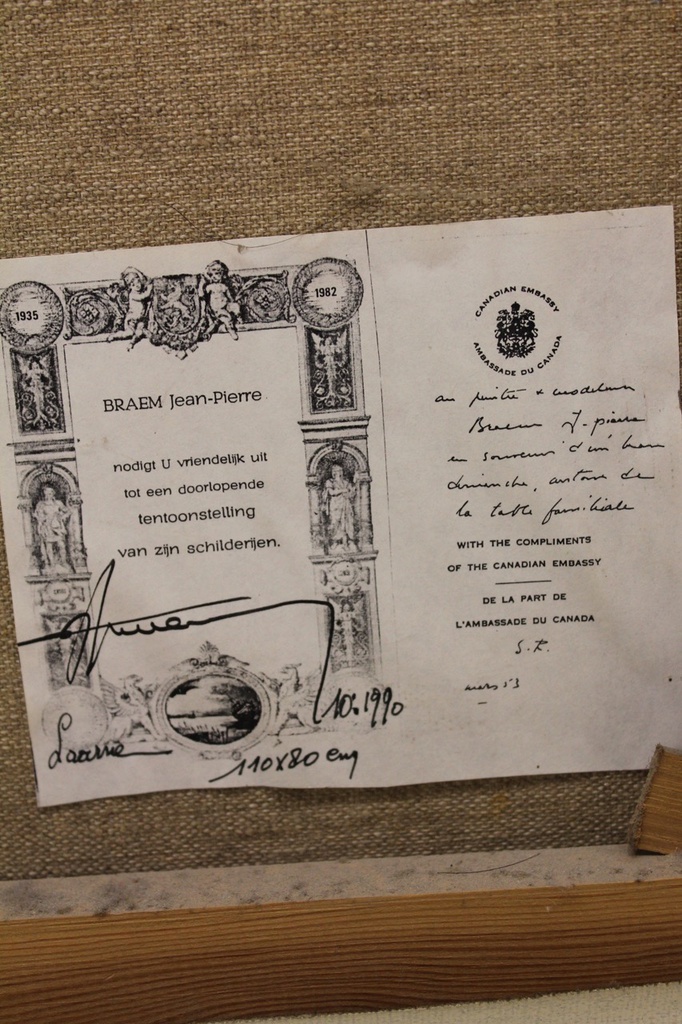 1935
1982
BRAEM Jean-Pierre
nodigt U vriendelijk uit
tot een doorlopende
tentoonstelling
van zijn schilderijen.
10.1990
110x80 cm
CANADIAN EMBASSY
AMBASSADE DU CANADA
au peintre &
Braem J-pierre
en souvenir d'un beau
dimanche, autour de
la table familiale
WITH THE COMPLIMENTS
OF THE CANADIAN EMBASSY
DE LA PART DE
L'AMBASSADE DU CANADA
mars